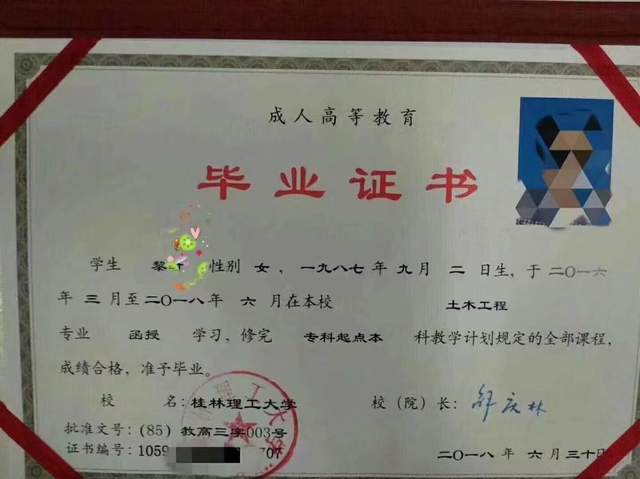 成人高等教育
毕业证书
学生 黎 性别 女，一九八七年 九月 二 日生，于二〇一六
年 三 月至二〇一八年 六 月在本校 土木工程
专业 函授 学习，修完 专科起点本 科教学计划规定的全部课程，
成绩合格，准予毕业。
校 名：桂林理工大学 校（院）长：
批准文号：(85) 教高三字003号
证书编号：1059 707 二〇一八年 六月三十日